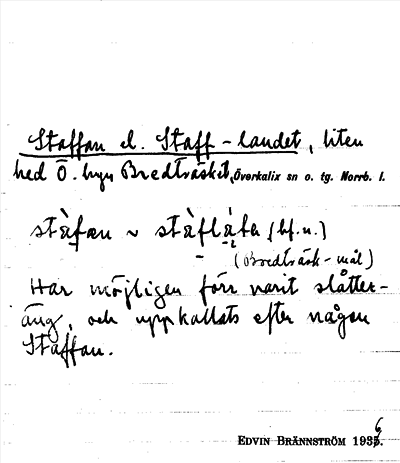 Staffan el. Staff-landet, liten
hed Ö. byn Bredträsket, Överkalix sn o. tg. Norrb. l.
stàfan ~ stàflátə (bf. n.)
(Bredträsk-mål)
Har möjligen förr varit slåtter-
äng, och uppkallats efter någon
Staffan.
EDVIN BRÄNNSTRÖM 1936.